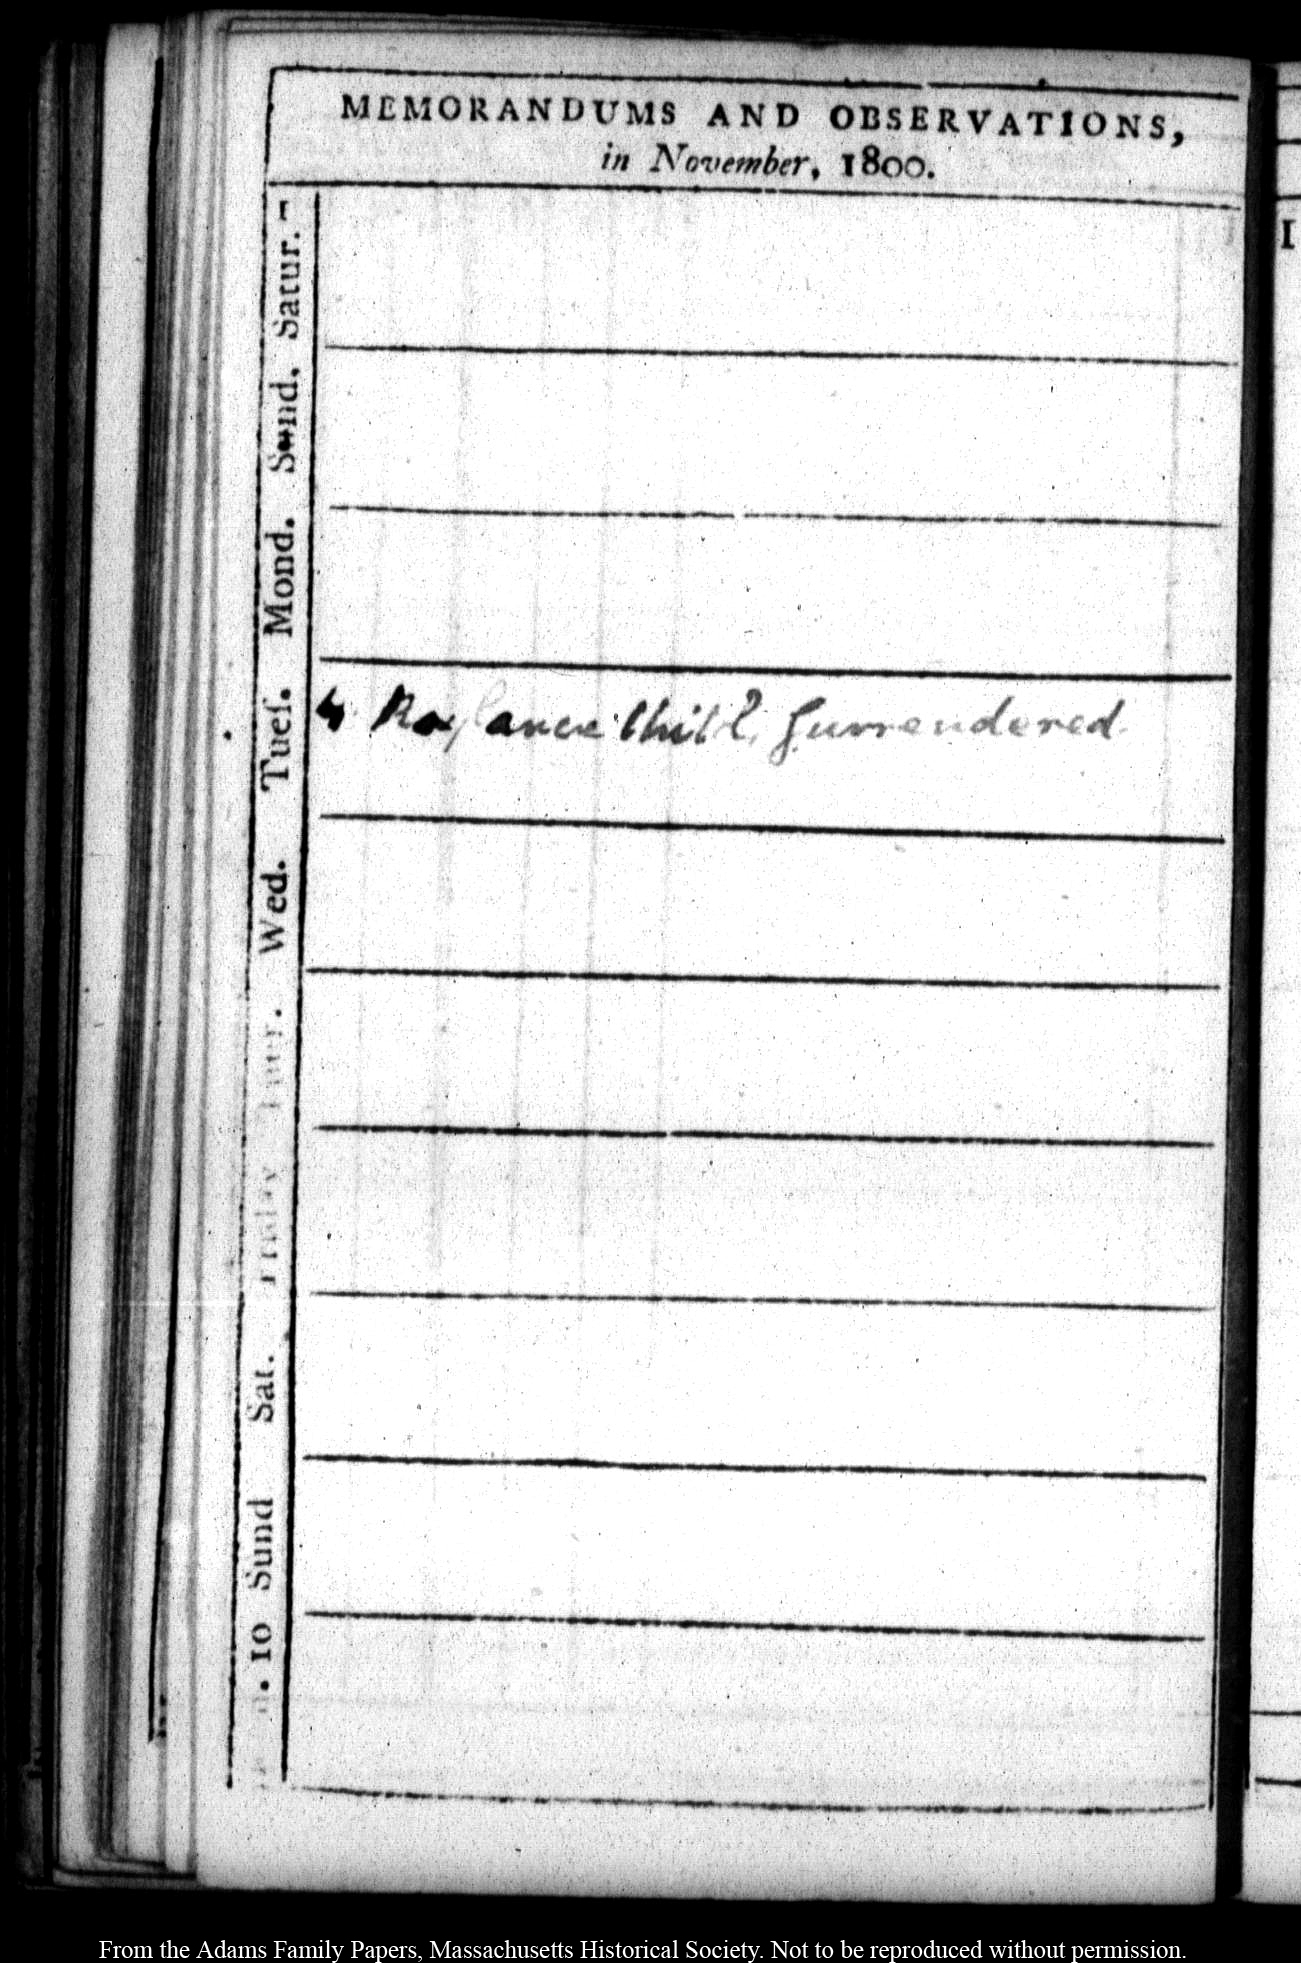 MEMORANDUMS AND OBSERVATIONS,
in November, 1800.
Satur. 1
Sund.
Mond.
Tues.
4 Roylance Child, Surrendered
Wed.
Friday
Sat.
Sund
10
I
From the Adams Family Papers, Massachusetts Historical Society. Not to be reproduced without permission.